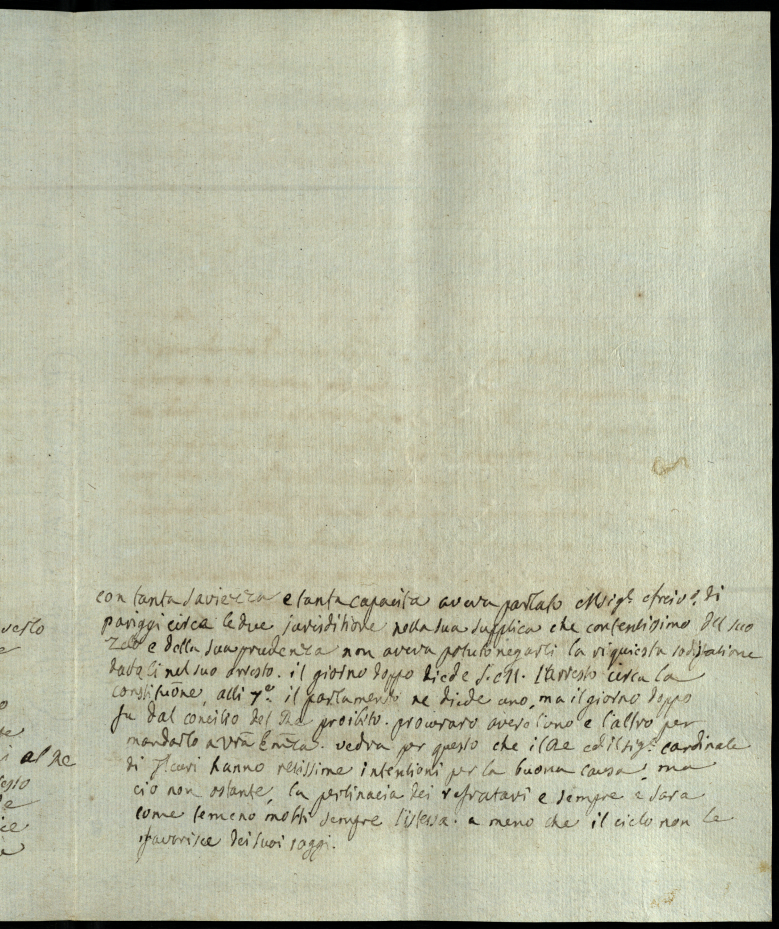 con tanta saviezza e tanta capacita aveva parlato Msigr. di
pariggi circa le due jurisditione nella sua supplica che contentissimo del suo
zelo e della sua prudenza non aveva potuto negarli la riquiesta sodisfatione
datali nel suo arresto. il giorno doppo diede S. M. l'arresto circa la
constitutione, alli 7º. il parlamento ne diede uno, ma il giorno doppo
fu dal concilio del Re proibito. procuraro avere l'uno e l'altro per
mandarlo a Vra Emza. vedra per questo che il Re ed il sigr. cardinale
di hanno retissime intentioni per la buona causa, ma
cio non ostante, la pertinacia dei refratavi e sempre e sara
come temeno molti sempre l'istessa. a meno che il cielo non le
favorisce dei suoi raggi.
vesto
al Re